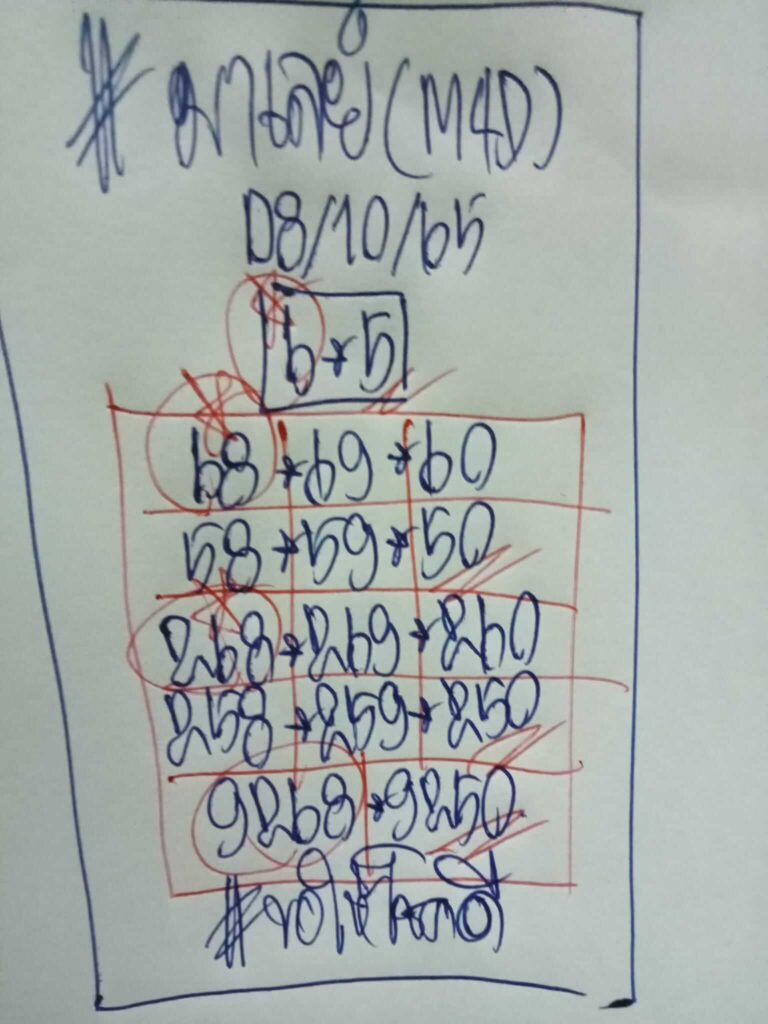 #มาเลย์(M4D)
08/10/65
6*5
68*69*60
58*59*50
268*269*260
258*259*250
9268*9250
#ขอให้โชคดี